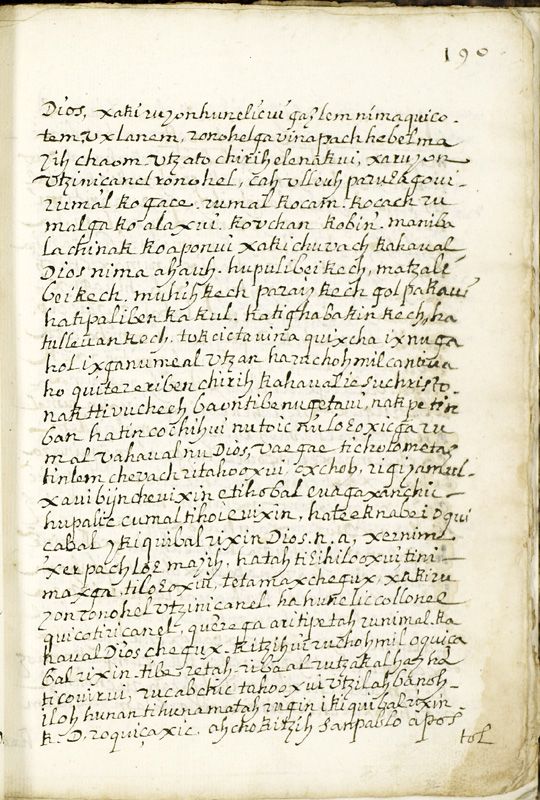 190
Dios, xaki ruyon hunelicui gaslem nima quico-
tem, uxlanem, ronohel ga vinapach hebel ma
yih chaom utzato chirih elenakui, xaruyon
utzinicanel ronohel, cah vlleuh
rumal kogace. rumal kocam. kocach ru
malga ko alaxui. kovchan kobin. maniba
la chinak koaponui xaki chuvach kahaual
Dios nima ahauh. hupulibeikech, matzali
beikech. muluhkech paraiz kech golpakaui
hatipaliben kakul. katighabakin kech, ha
tulleuankech. tokcictauina quixcha ixnuga
hol ixganumeal utzan haruchohmil
ho quiterereiben chirih kahaual Iesuchristo.
nak tti vucheeh nak petin
ban hatin cochihui nutoic ru
mal vahaual nu Dios, vaegae ticholometas
tinlem chevach ritahooxui
xaui bijn chevixin etihobal
hupalic cumal tihoievixin,
cabal ykiquibal rixin Dios. n. a, xernim
xerpach majih, hatah tini
maxga. tetamaxchegux, xakiru
yon ronohel utzinicanel, ha hunelic collonel
quicotiricanel, querega aritipetah runimal. ka
haual Dios chegux. kitzihui ruchohmil oquiça
balrixin. tibe retah, ribaal rutzakalhay ha
ticouirui, rucabchic tahooxui utzilah banoh-
iloh hunan tihunamatah rugin ikiquibal rixin
k. D, roquiçaxic. ahcho kitzih San pablo apos-
tol